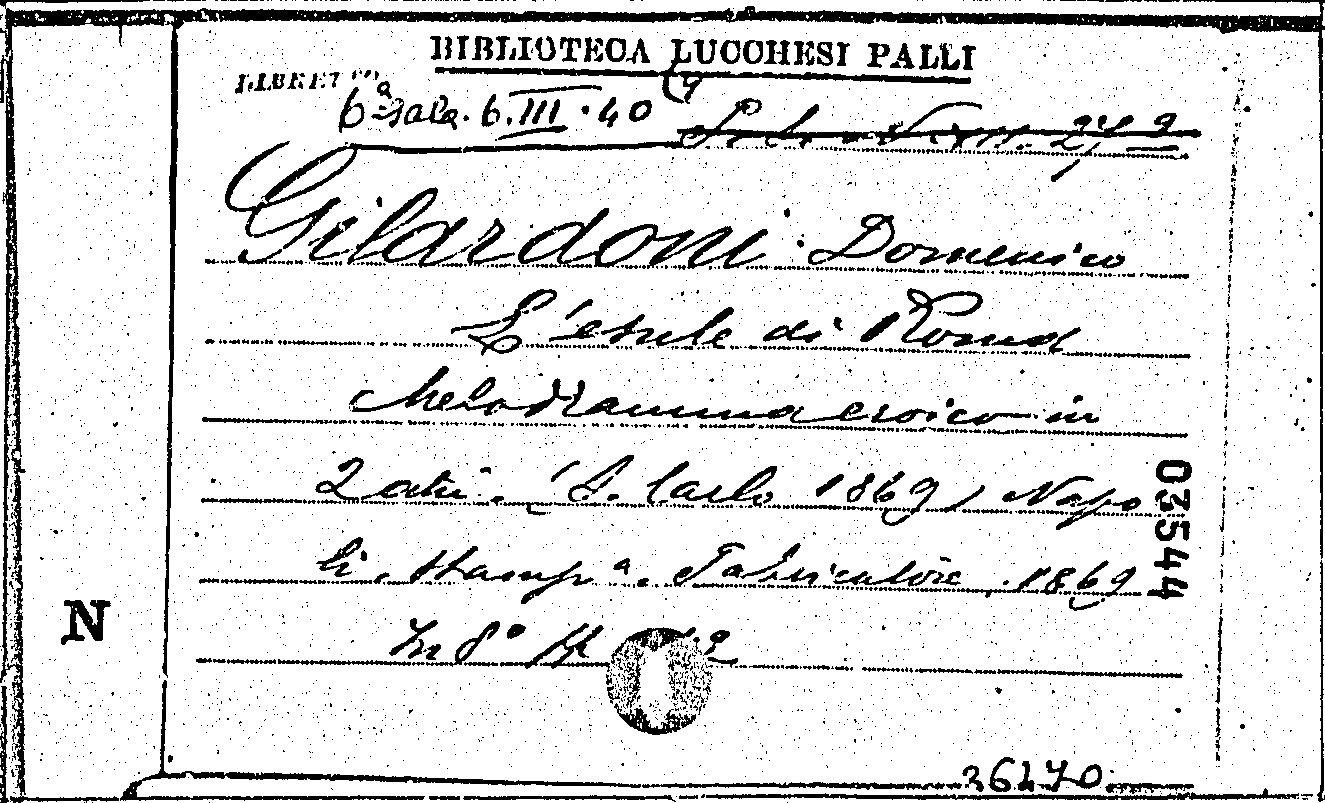 BIBLIOTECA LUCCHESI PALLI
LIBRETTI
6ª Sala. 6. III. 40 (4
Gilardoni Domenico
L'esule di Roma
Melodramma eroico in
2 atti. (S. Carlo 1869) Napo
li. Stampª. Fabricatore, 1869
In 8°
N
03544
36470